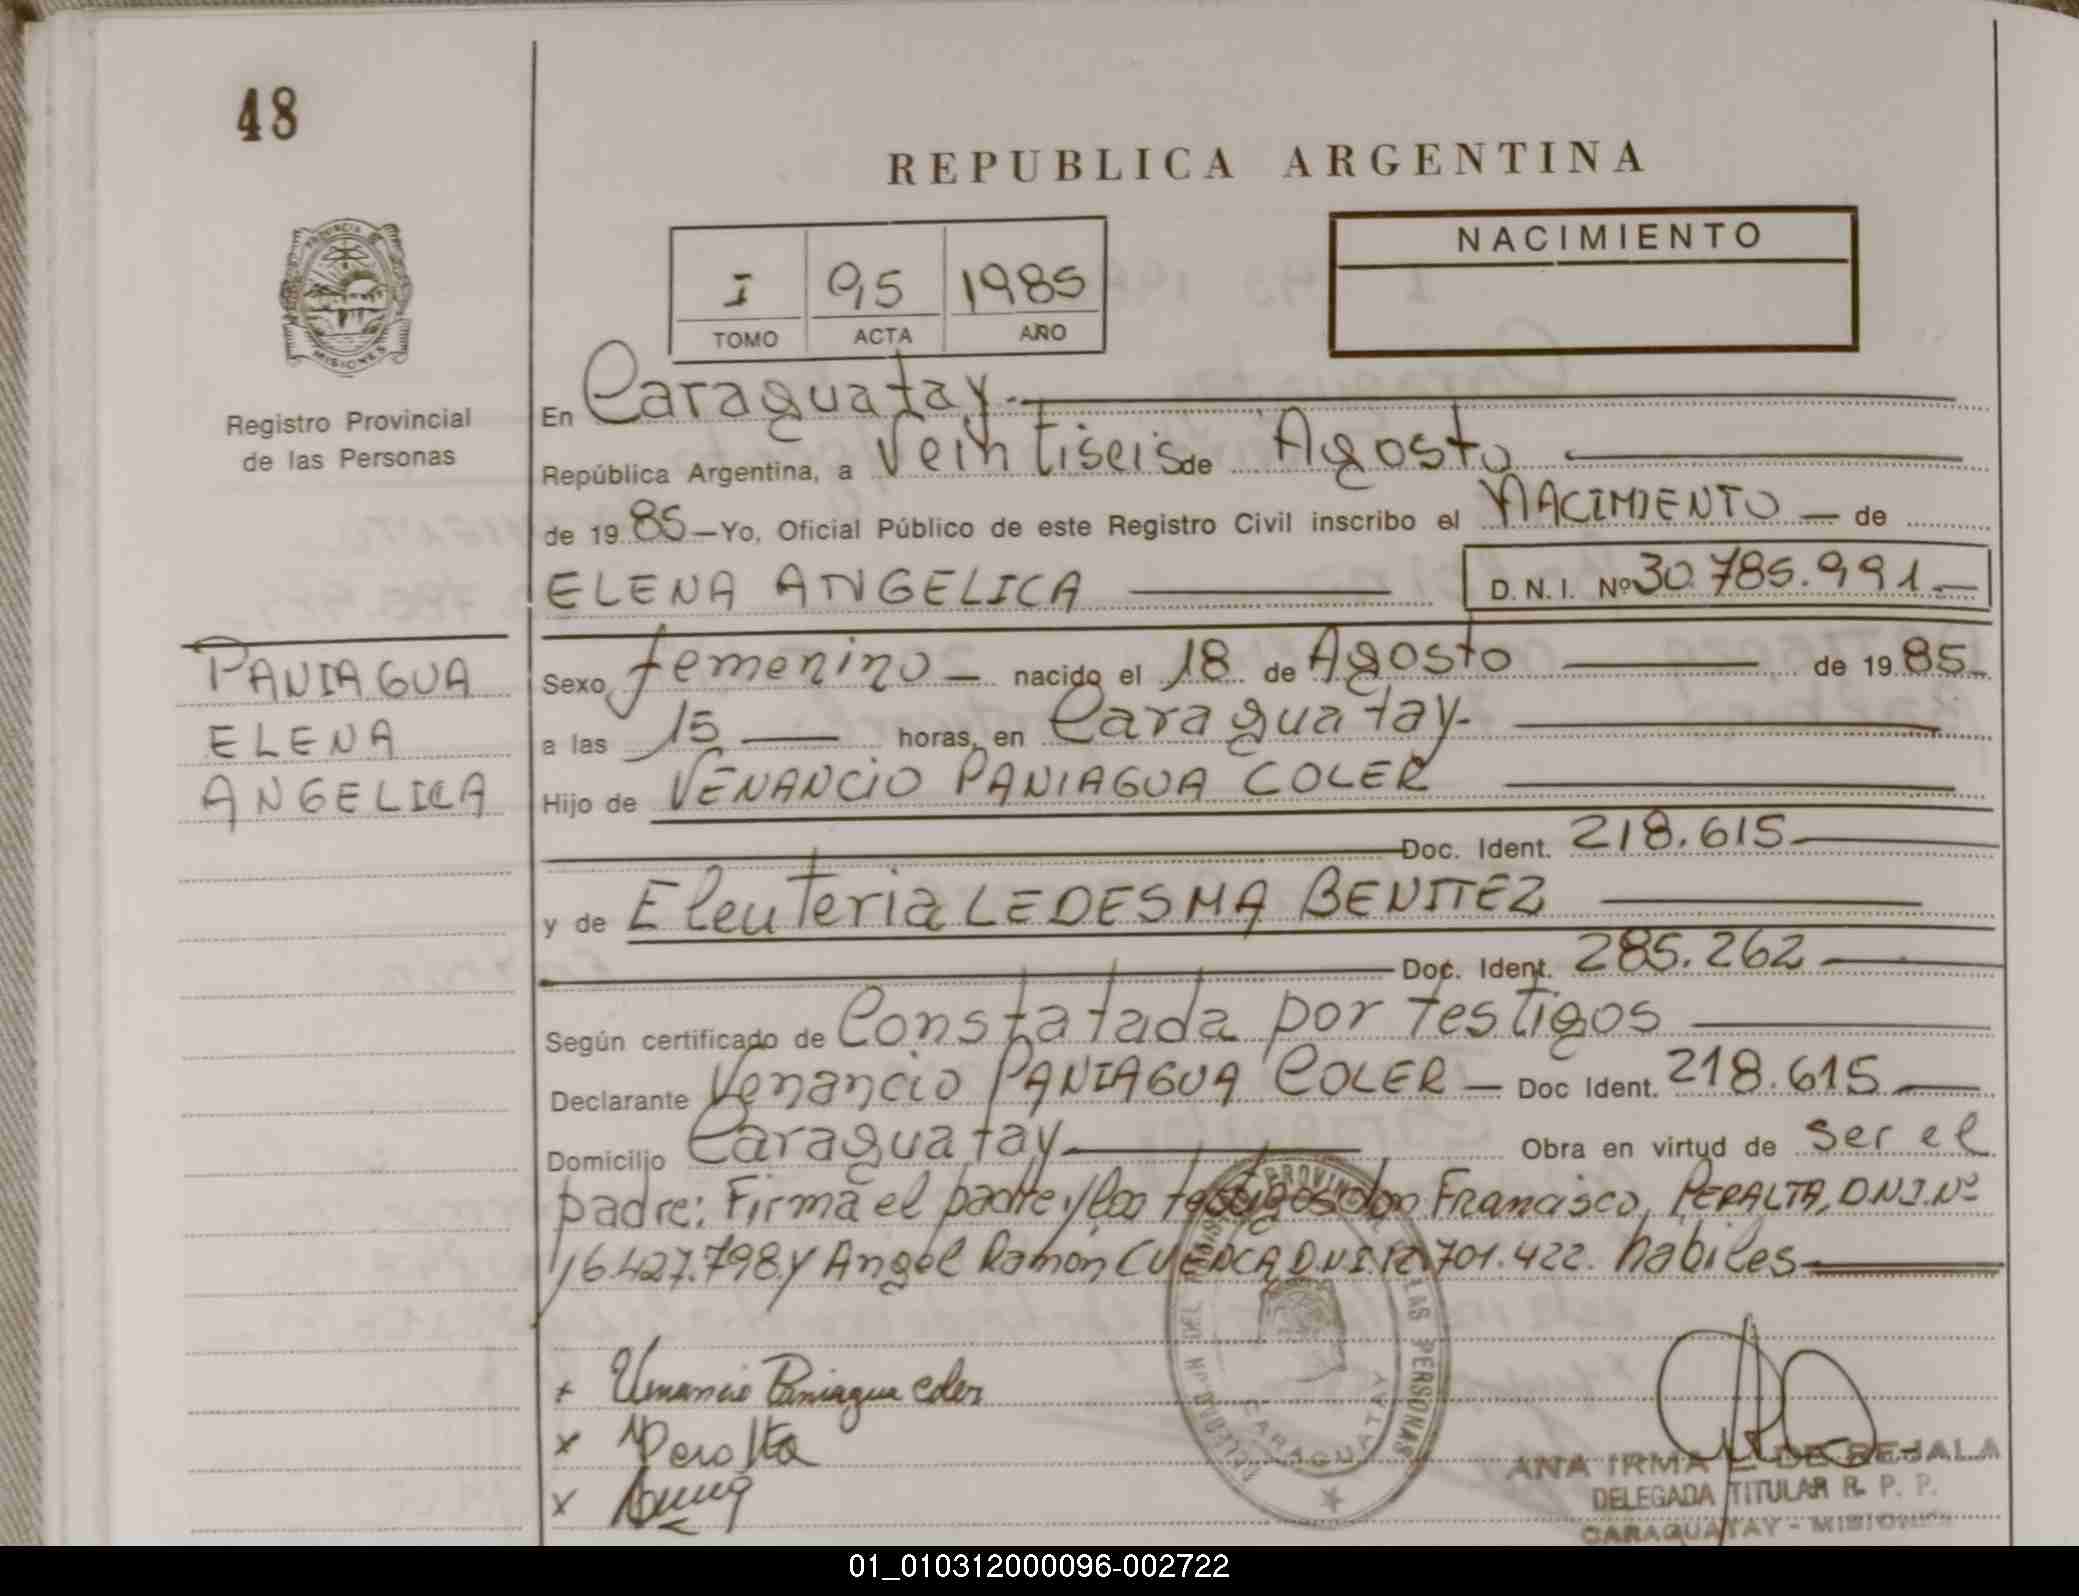 48
REPUBLICA ARGENTINA
NACIMIENTO
I 95 1985
TOMO ACTA AÑO
PROVINCIA DE
MISIONES
Registro Provincial
de las Personas
En Caraguatay.
República Argentina, a Veintiseis de Agosto
de 1985 — Yo, Oficial Público de este Registro Civil inscribo el NACIMIENTO — de
ELENA ANGELICA D. N. I. Nº 30.785.991 —
PANIAGUA
ELENA
ANGELICA
Sexo femenino — nacido el 18 de Agosto — de 1985
a las 15 — horas, en Caraguatay-
Hijo de VENANCIO PANIAGUA COLER
Doc. Ident. 218.615
y de Eleuteria LEDESMA BENITEZ
Doc. Ident. 285.262
Según certificado de Constatada por testigos
Declarante Venancio PANIAGUA COLER — Doc Ident. 218.615
Domicilio Caraguatay Obra en virtud de ser el
padre: Firma el padre y los testigos don Francisco PERALTA, D.N.I.Nº
16.427.798 y Angel Ramón CUENCA D.N.I. 12.701.422. habiles
x Venancio Paniagua Coler
x Peralta
x
CARAGUATAY
LAS PERSONAS
ANA IRMA DE BEJALA
DELEGADA TITULAR R. P. P.
CARAGUATAY - MISIONES
01_010312000096-002722